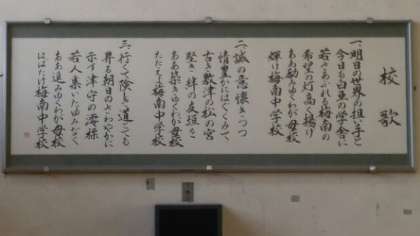 校歌
一、明日の世界の担い手と
今日も白亜の学舎に
若さあふれる梅南の
希望の灯高く揚げ
ああ励みゆくわが母校
輝け梅南中学校
二、誠の意懐きつつ
情豊かにはぐくみて
古き敷津の松の宮
堅き絆の友垣を
ああ築きゆくわが母校
たたえよ梅南中学校
三、行くて険しき道とても
昇る朝日のさわやかに
示す津守の澪標
若人集いたゆみなく
ああ進みゆくわが母校
はばたけ梅南中学校